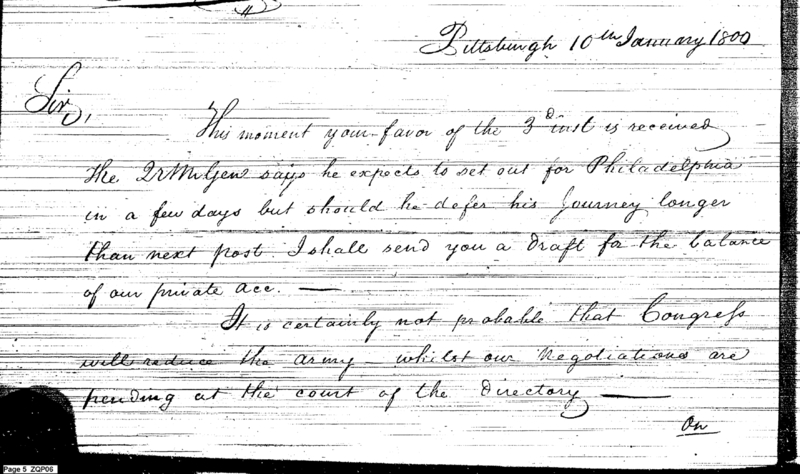 Pittsburgh 10th January 1800
Sir,
This moment your favor of the 3d inst is received
the QrMrGen says he expects to set out for Philadelphia
in a few days but should he defer his Journey longer
than next post I shall send you a draft for the balance
of our private acc. —
It is certainly not probable that Congress
will reduce the army whilst our Negotiations are
pending at the court of the Directory —
On
Page 5 ZQP06